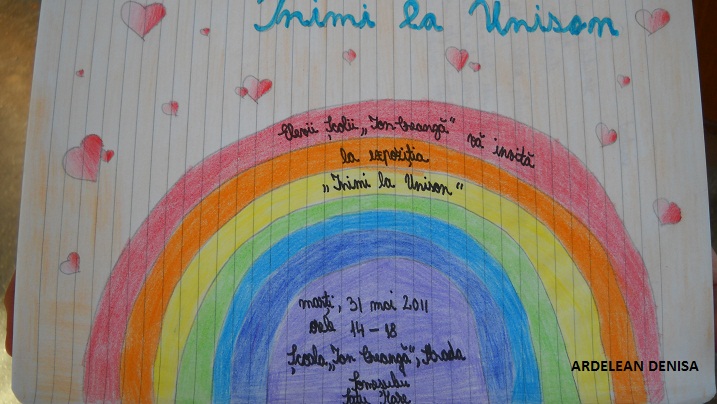 Inimi la Unison
Elevii Școlii „Ion Creangă” vă invită
la expoziția
„Inimi la Unison”
marți, 31 mai 2011
orele 14-18
Școala „Ion Creangă”, Strada
Someșului
Satu Mare
ARDELEAN DENISA